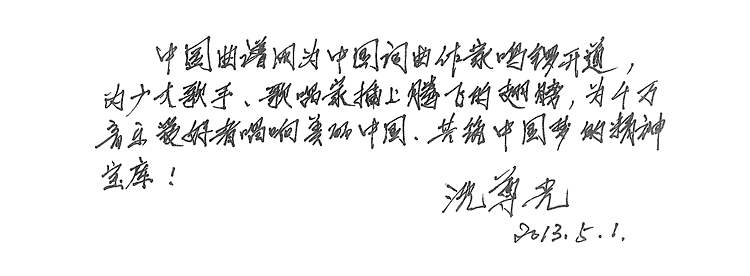 中国曲谱网为中国词曲作家鸣锣开道，
为广大歌手、歌唱家插上腾飞的翅膀，为千万
音乐爱好者唱响美丽中国、共筑中国梦的精神
宝库！
沈尊光
2013.5.1.